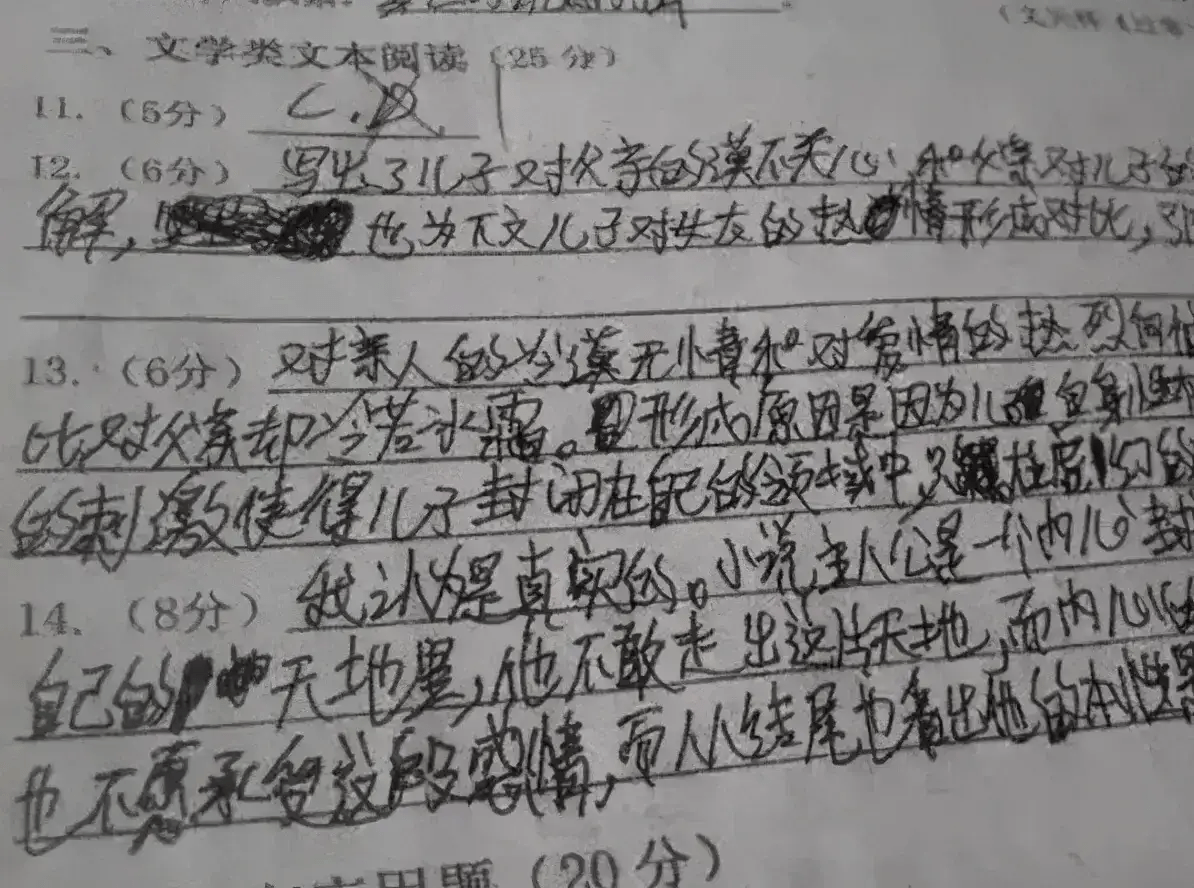 三、文学类文本阅读（25分）
11.（5分） C.
12.（6分） 写出了儿子对父亲的漠不关心，和父亲对儿子的
解， 也为下文儿子对女友的热情形成对比，
13.（6分） 对亲人的冷漠无情和对爱情的热烈
比对父亲却冷若冰霜。形成原因是因为儿 自身
的刺激使得儿子封闭在自己的领域中，只
14.（8分） 我认为是真实的。小说主人公是一个内心封
自己的 天地里，他不敢走出这片天地，而内心
也不愿承受这段感情，而从结尾也看出他的本性
用题（20分）